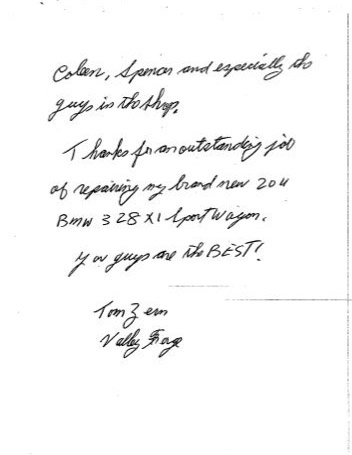 Coleen, Spencer and especially the
guys in the shop.
Thanks for an outstanding job
of repairing my brand new 2011
BMW 328 XI Sport Wagon.
You guys are the BEST!
Tom Zern
Valley Forge